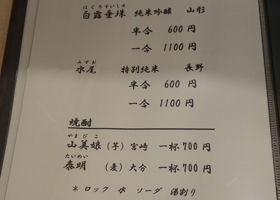 はくろすいしゅ
白露垂珠 純米吟醸 山形
半合 600円
一合 1100円
みずお
水尾 特別純米 長野
半合 600円
一合 1100円
焼酎
やまびこ
山美娘 (芋) 宮崎 一杯700円
たいめい
泰明 (麦) 大分 一杯700円
ロック 水 ソーダ 湯割り